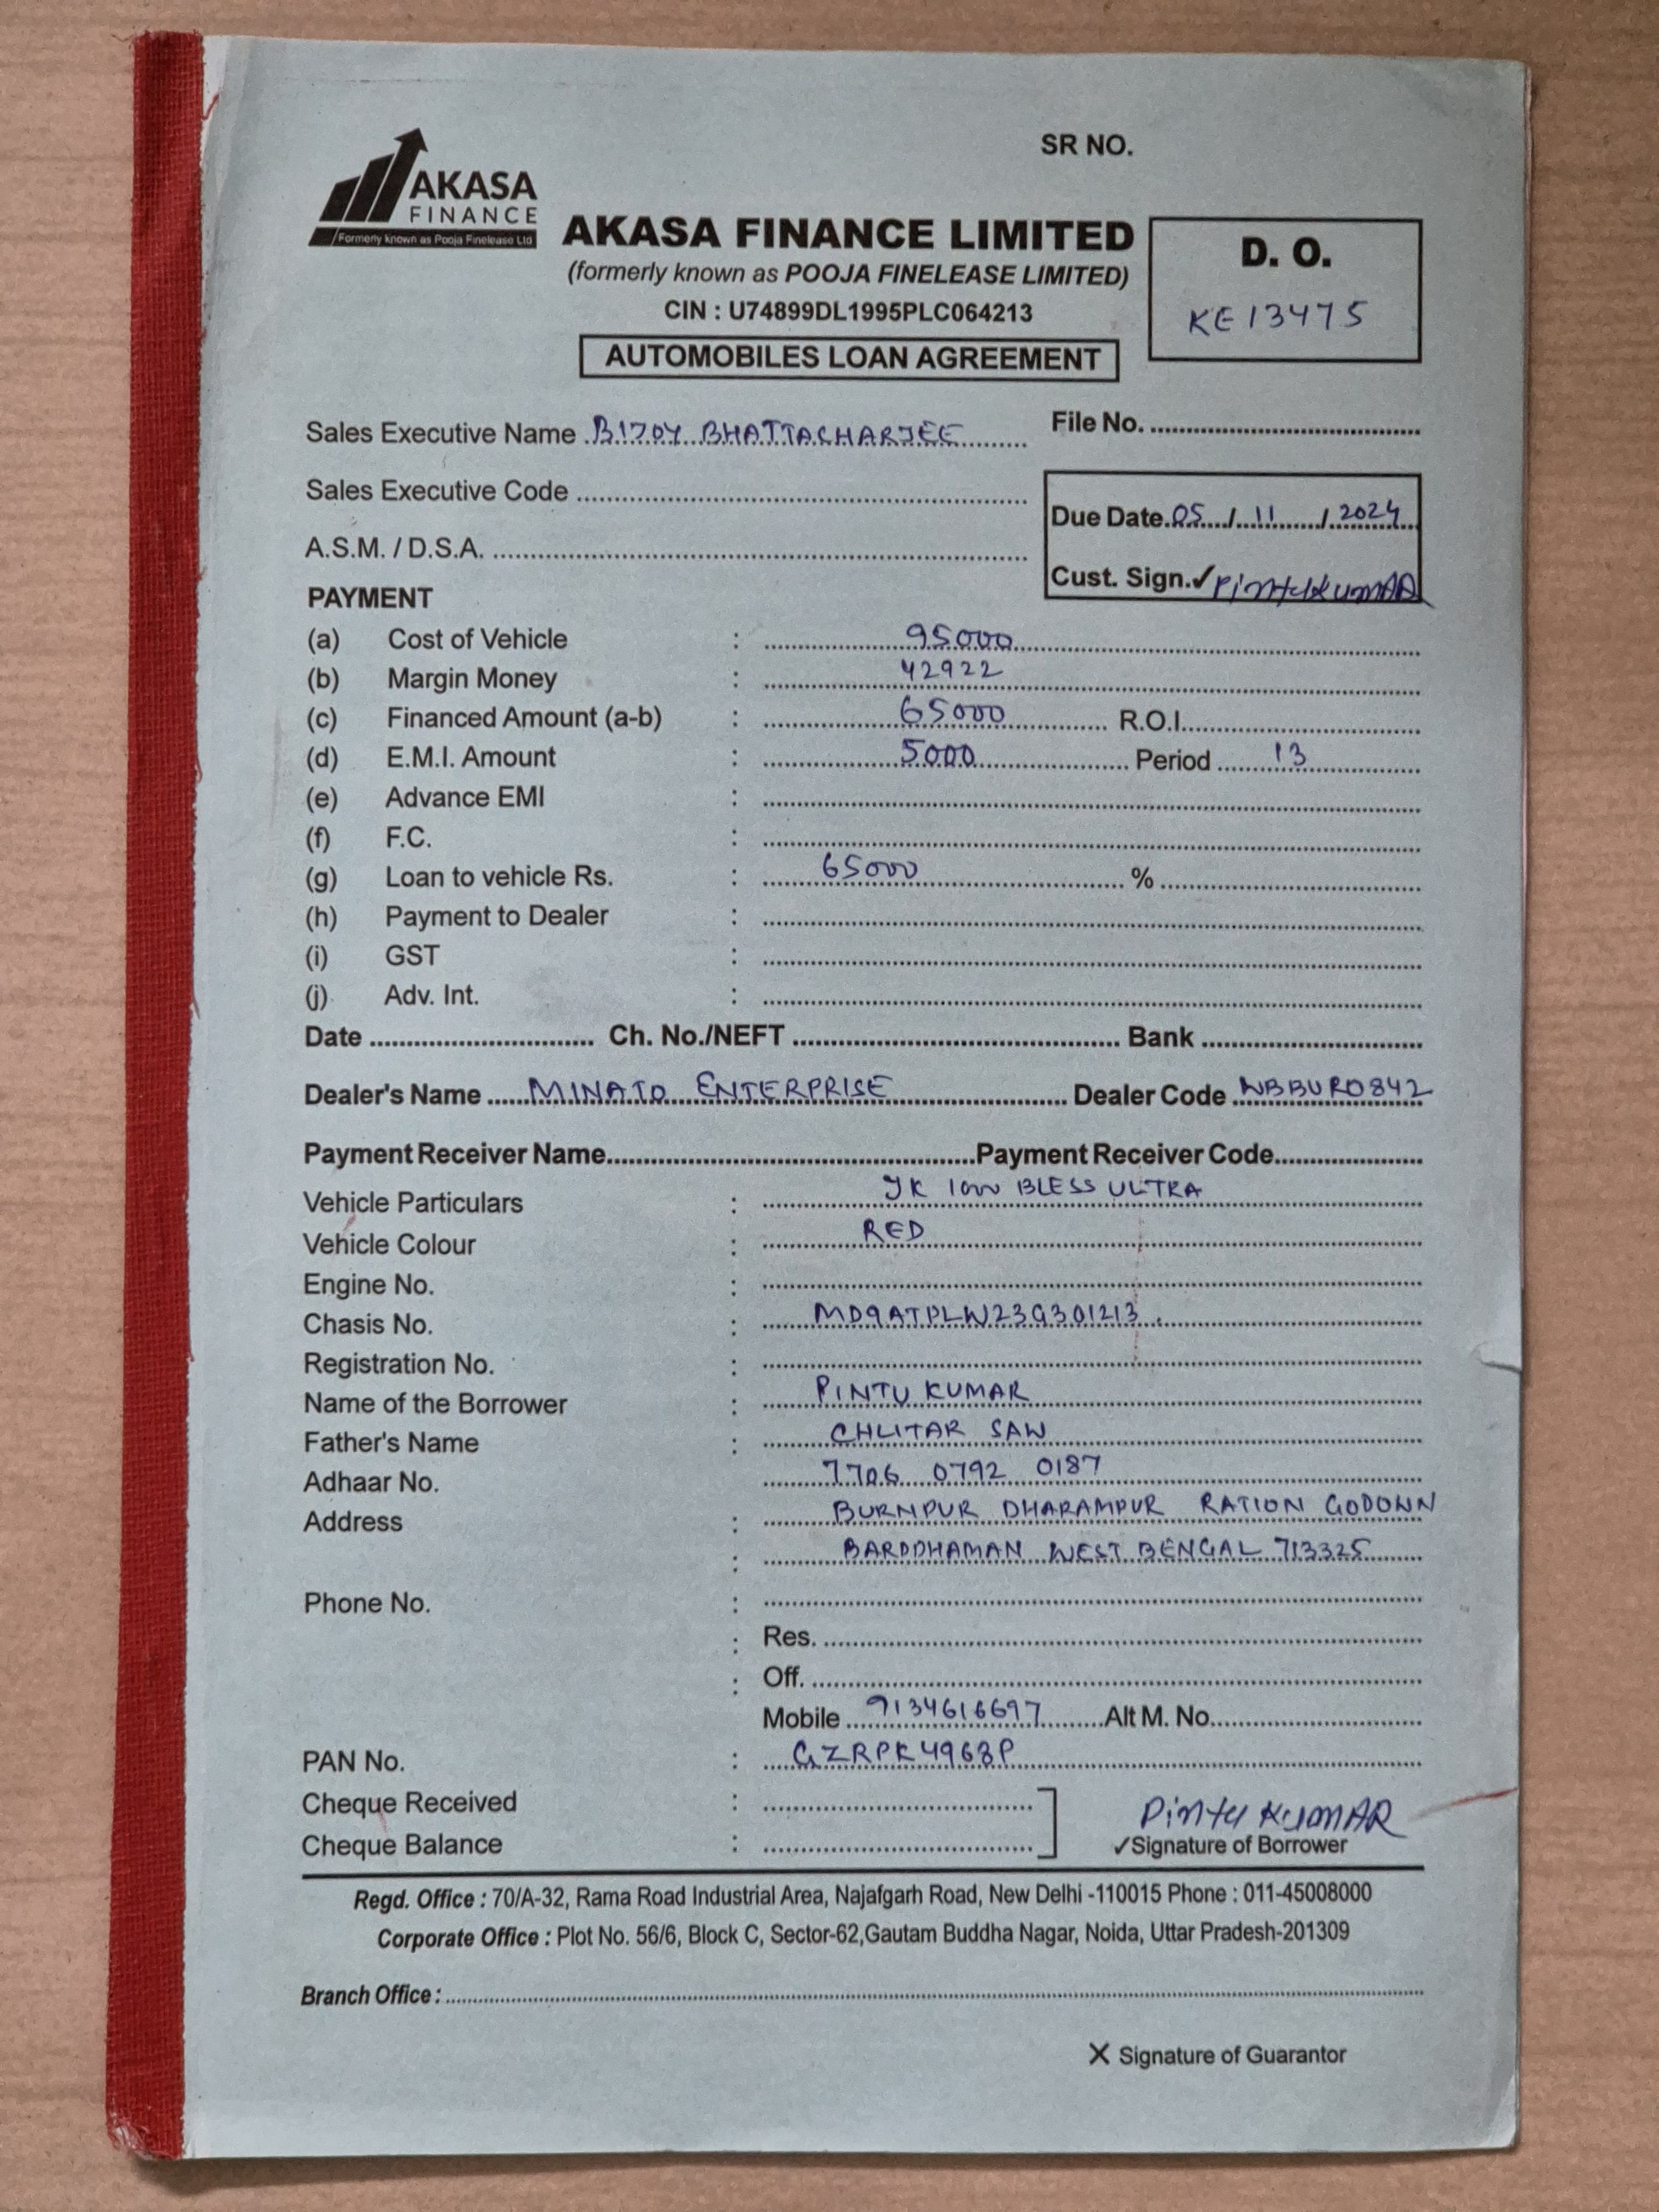 SR NO.
AKASA
FINANCE
Formerly known as Pooja Finelease Ltd
AKASA FINANCE LIMITED
(formerly known as POOJA FINELEASE LIMITED)
CIN : U74899DL1995PLC064213
AUTOMOBILES LOAN AGREEMENT
D. O.
KE13475
Sales Executive Name BIJOY BHATTACHARJEE File No.
Sales Executive Code
Due Date 05 / 11 / 2024
A.S.M. / D.S.A.
Cust. Sign. ✓ Pintu KumAR
PAYMENT
(a) Cost of Vehicle : 95000
(b) Margin Money : 42922
(c) Financed Amount (a-b) : 65000 R.O.I.
(d) E.M.I. Amount : 5000 Period 13
(e) Advance EMI :
(f) F.C. :
(g) Loan to vehicle Rs. : 65000 %
(h) Payment to Dealer :
(i) GST :
(j) Adv. Int. :
Date Ch. No./NEFT Bank
Dealer's Name MINATO ENTERPRISE Dealer Code WBBUR0842
Payment Receiver Name Payment Receiver Code
Vehicle Particulars : BLESS ULTRA
Vehicle Colour : RED
Engine No. :
Chasis No. : MD9ATPLW23G301213
Registration No. :
Name of the Borrower : PINTU KUMAR
Father's Name : SAW
Adhaar No. : 7706 0792 0187
Address : BURNPUR DHARAMPUR RATION GODOWN
: BARDDHAMAN WEST BENGAL 713325
Phone No. :
: Res.
: Off.
Mobile 9134616697 Alt M. No.
PAN No. : GZRPK4963P
Cheque Received :
Pintu KumAR
Cheque Balance :
✓Signature of Borrower
Regd. Office : 70/A-32, Rama Road Industrial Area, Najafgarh Road, New Delhi -110015 Phone : 011-45008000
Corporate Office : Plot No. 56/6, Block C, Sector-62,Gautam Buddha Nagar, Noida, Uttar Pradesh-201309
Branch Office :
X Signature of Guarantor